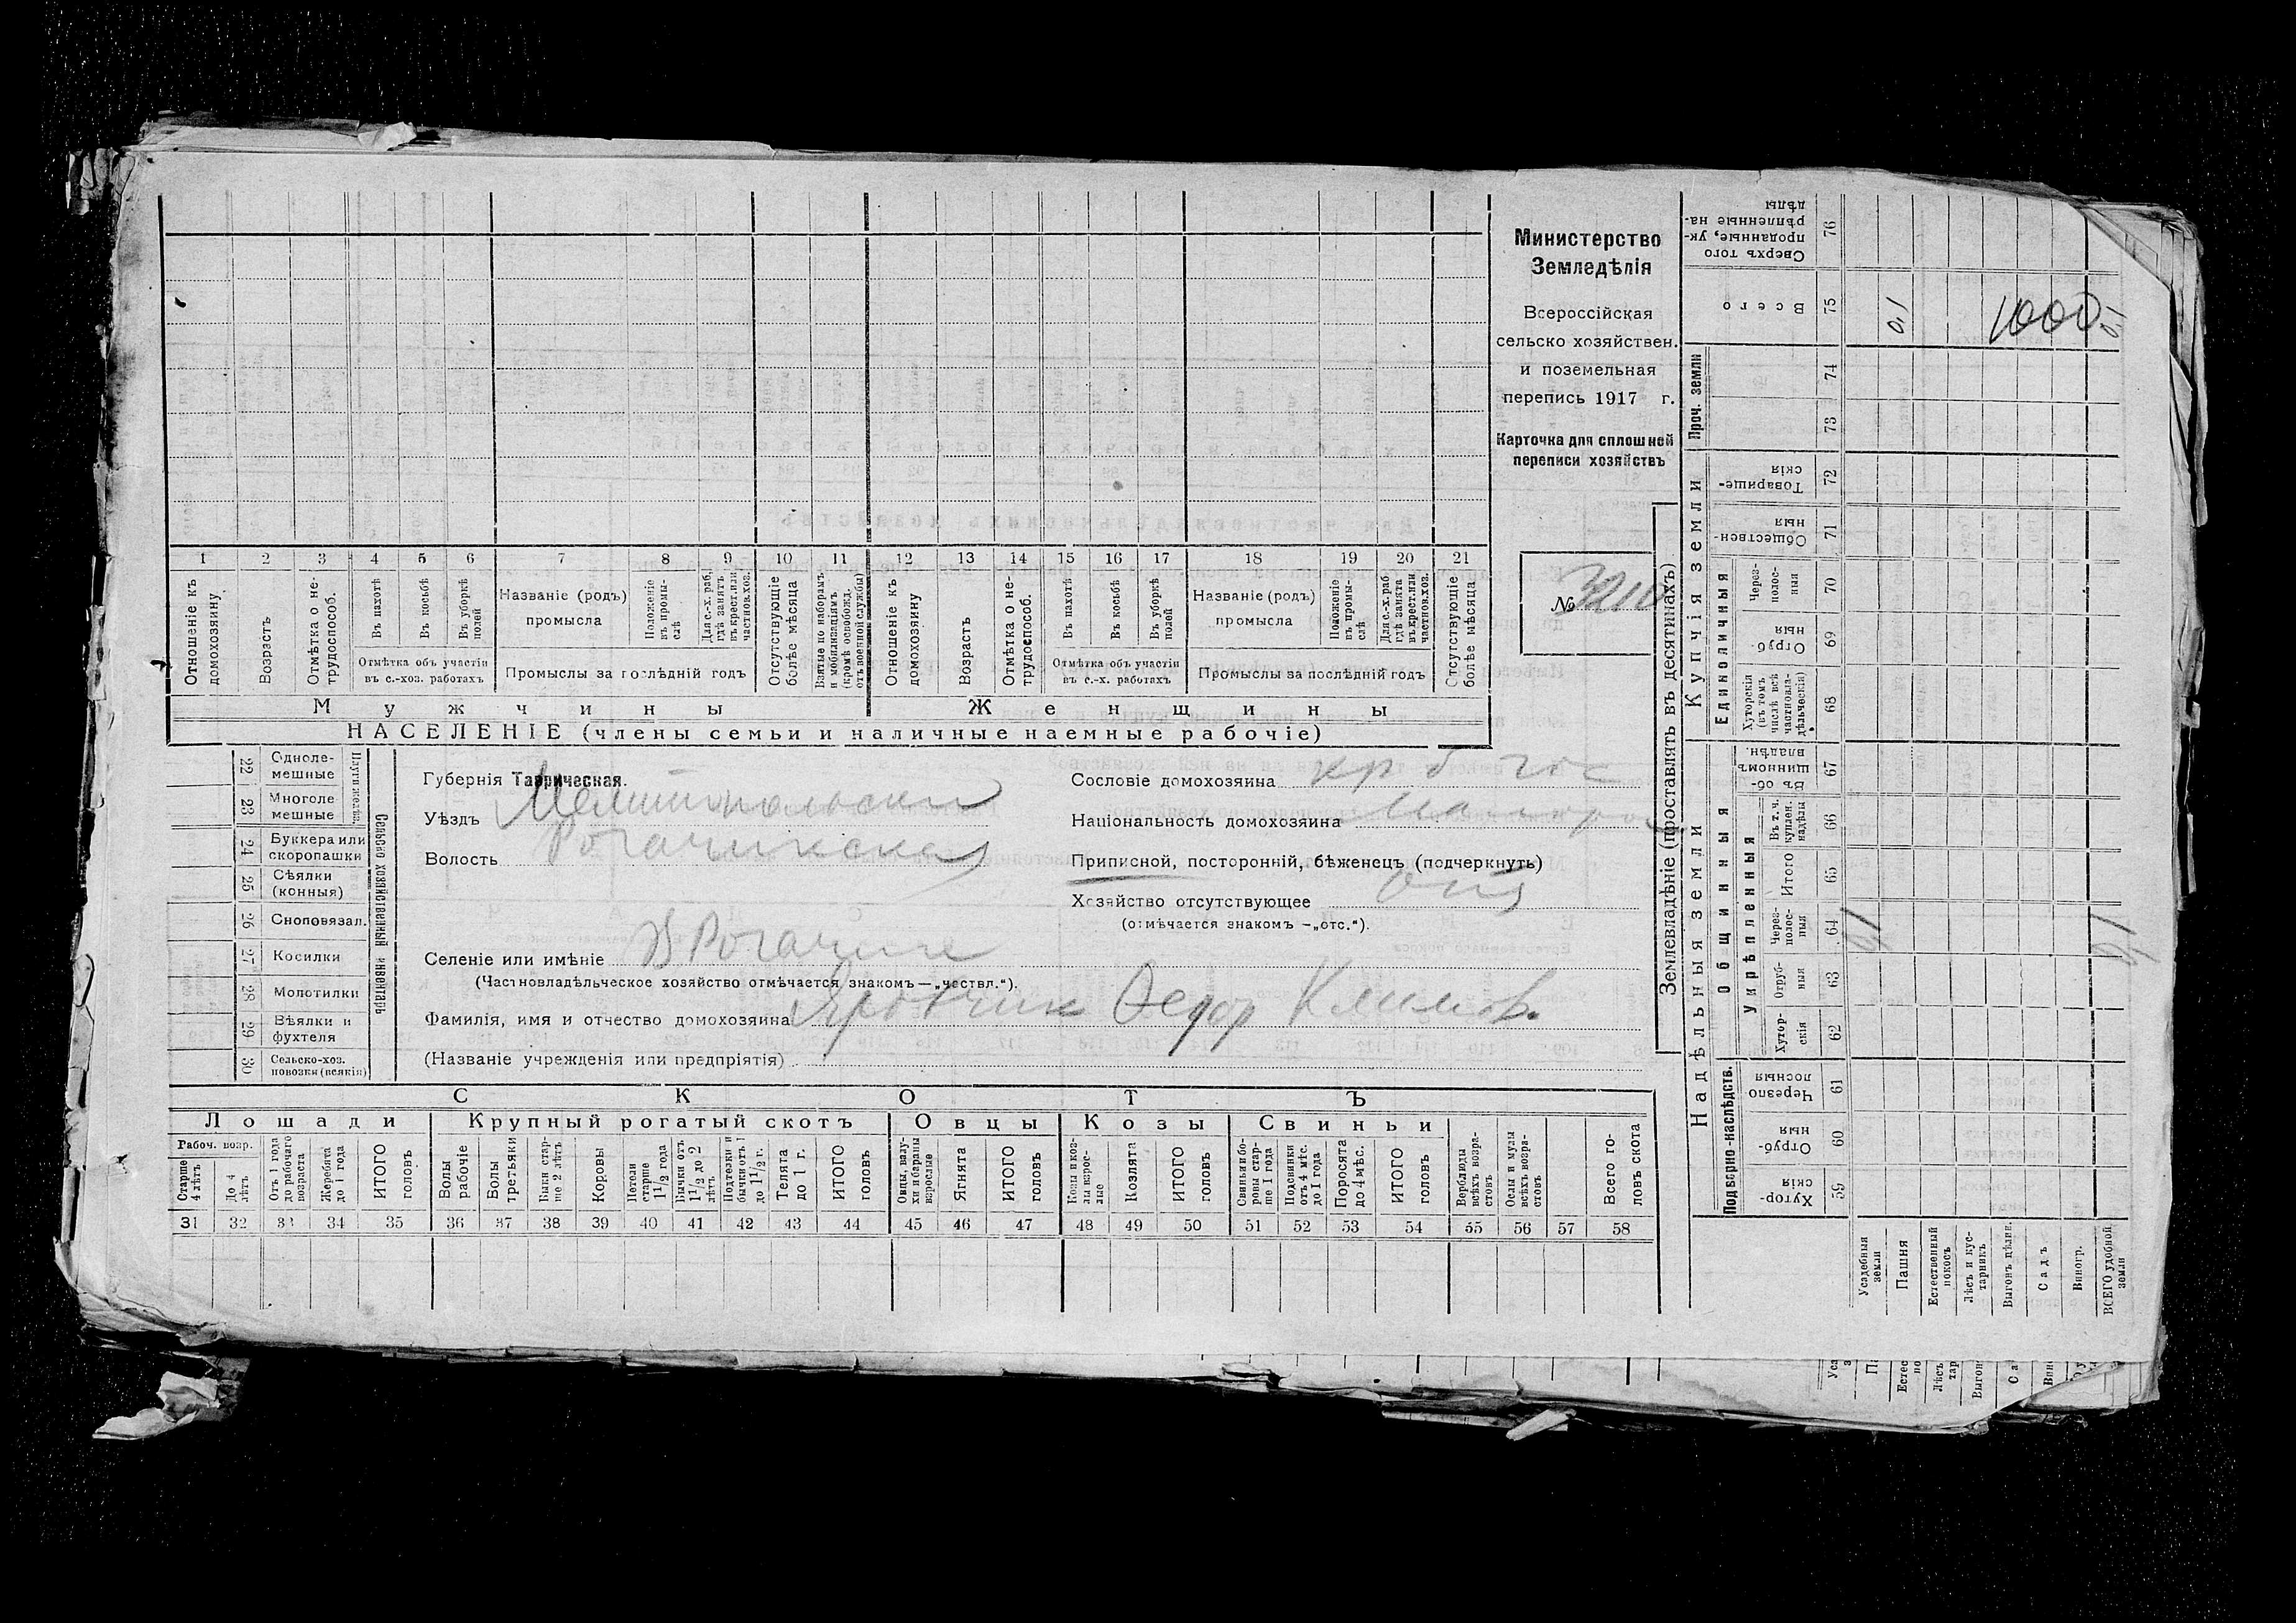 Министерство
Земледѣлія
Всероссійская
сельско хозяйствен.
и поземельная
перепись 1917 г.
Карточка для сплошней
переписи хозяйствъ
№ 3210
1 2 3 4 5 6 7 8 9 10 11 12 13 14 15 16 17 18 19 20 21
Отношеніе къ домохозяину
Возрастъ
Отмѣтка о не-трудоспособ.
Въ пахотѣ
Въ косьбѣ
Въ уборкѣ полей
Отмѣтка объ участіи въ с.-хоз. работахъ
Названіе (родъ) промысла
Положеніе въ промы-слѣ
Для с.-х. раб, гдѣ занятъ въ крест. или частнов. хоз.
Промыслы за послѣдній годъ
Отсутствующіе болѣе мѣсяца
Взятые по наборамъ и мобилизаціямъ (кромѣ освобожд. отъ военной службы)
Отношеніе къ домохозяину
Возрастъ
Отмѣтка о не-трудоспособ.
Въ пахотѣ
Въ косьбѣ
Въ уборкѣ полей
Отмѣтка объ участіи въ с.-х. работахъ
Названіе (родъ) промысла
Положеніе въ промы-слѣ
Для с.-х. раб гдѣ занята въ крест. или частнов. хоз.
Промыслы за послѣдній годъ
Отсутствующіе болѣе мѣсяца
Мужчины
Женщины
НАСЕЛЕНІЕ (члены семьи и наличные наемные рабочіе)
22 Одноле-мешные
23 Многоле мешные
24 Буккера или скоропашки
25 Сѣялки (конныя)
26 Сноповязал.
27 Косилки
28 Молотилки
29 Вѣялки и фухтеля
30 Сельско-хоз. повозки (всякія)
Сельско хозяйственный инвентарь
Губернія Таврическая.
Уѣздъ Мелитопольски
Волость Рогачикская
Селеніе или имѣніе В Рогачик
(Частновладѣльческое хозяйство отмѣчается знакомъ—„частвл.“).
Фамилія, имя и отчество домохозяина Яротчик Федор Климов.
(Названіе учрежденія или предпріятія)
Сословіе домохозяина кр б гос
Національность домохозяина малорос
Приписной, посторонній, бѣженецъ (подчеркнуть)
Хозяйство отсутствующее отс
(отмѣчается знакомъ —„отс.“).
СКОТЪ
Лошади
Крупный рогатый скотъ
Овцы
Козы
Свиньи
Рабоч. возр.
Старше 4 лѣтъ
До 4 лѣтъ
Отъ 1 года до рабочаго возраста
Жеребята до 1 года
ИТОГО головъ
Волы рабочіе
Волы третьяки
Быки стар-ше 2 лѣтъ
Коровы
Нетели старше 1 1/2 года
Бычки отъ 1 1/2 до 2 лѣтъ
Подтелки и бычки отъ 1 до 1 1/2 г.
Телята до 1 г.
ИТОГО головъ
Овцы, валу-хи и бараны взрослые
Ягнята
ИТОГО головъ
Козы и коз-лы взрос-лые
Козлята
ИТОГО головъ
Свиньи и бо-ровы стар-ше 1 года
Подсвинки отъ 4 мѣс. до 1 года
Поросята до 4 мѣс.
ИТОГО головъ
Верблюды всѣхъ возра-стовъ
Ослы и мулы всѣхъ возра-стовъ
Всего го-ловъ скота
31 32 33 34 35 36 37 38 39 40 41 42 43 44 45 46 47 48 49 50 51 52 53 54 55 56 57 58
Землевладѣніе (проставлять въ десятинахъ)
Купчія земли
Надѣльныя земли
Проч. земли
Единоличныя
Общинныя
Укрѣпленныя
Подворно-наслѣдств.
Сверхъ того проданные, ук-рѣпленные на-дѣлы 76
Всего 75
74
73
Товарище-скія 72
Обществен-ныя 71
Через-полос-ныя 70
Отруб-ныя 69
Хуторскія (въ томъ числѣ всѣ частновла-дѣльческія) 68
Въ об-щинномъ владѣн. 67
Въ т. ч. куплен. надѣлы 66
Итого 65
Через-полос-ныя 64
Отруб-ныя 63
Хутор-скія 62
Черезпо лосныя 61
Отруб-ныя 60
Хутор-скія 59
Усадебныя земли
Пашня
Естественный покосъ
Лѣсъ и кус-тарникъ
Выгонъ цѣлин.
Садъ
Виногр.
ВСЕГО удобной земли
0,1
1000
0,1